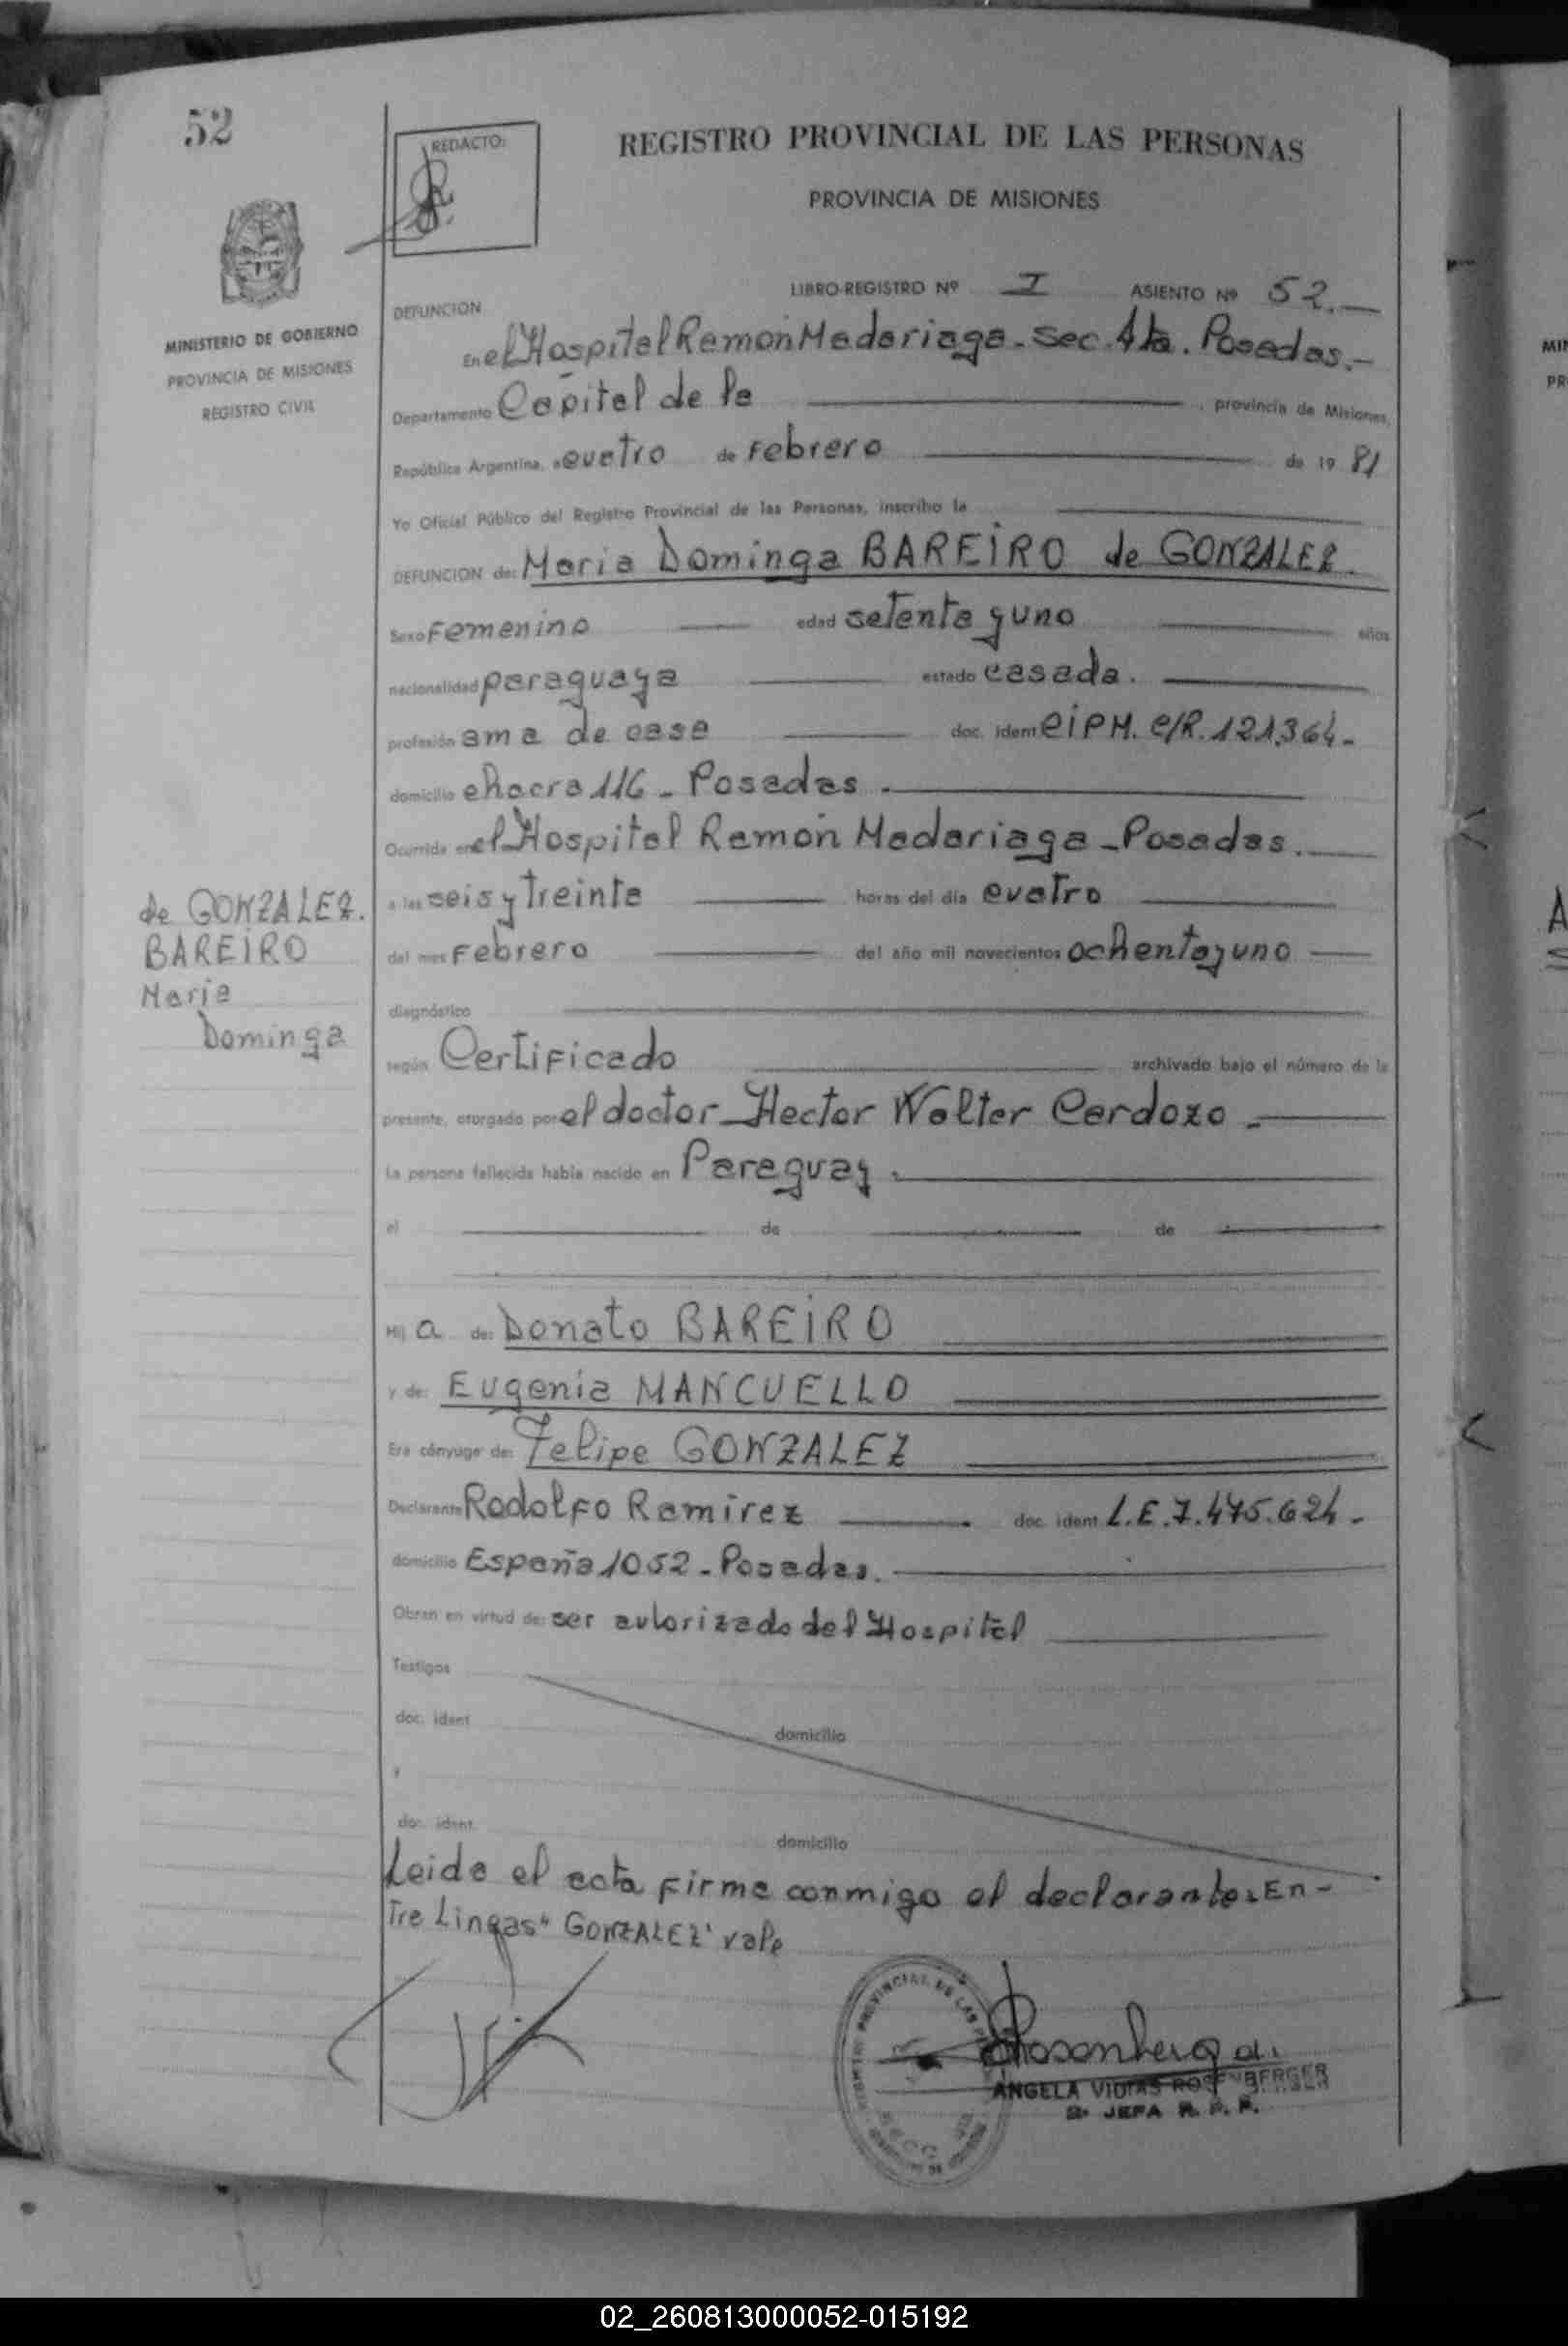 52
REDACTO:
REGISTRO PROVINCIAL DE LAS PERSONAS
PROVINCIA DE MISIONES
MINISTERIO DE GOBIERNO
PROVINCIA DE MISIONES
REGISTRO CIVIL
LIBRO-REGISTRO Nº I ASIENTO Nº 52.
DEFUNCION
En el Hospital Ramón Madariaga - Sec. 4ta. Posadas.-
Departamento Capital de la provincia de Misiones,
República Argentina, a cuatro de Febrero de 19 81
Yo Oficial Público del Registro Provincial de las Personas, inscribo la
DEFUNCION de: Maria Dominga BAREIRO de GONZALEZ.
Sexo Femenino edad setenta y uno años
nacionalidad paraguaya estado casada.
profesión ama de casa doc. ident CiPM. C/R. 121.364-
domicilio chacra 116 - Posadas.
Ocurrida en el Hospital Ramón Madariaga - Posadas.
a las seis y treinta horas del día cuatro
del mes Febrero del año mil novecientos ochenta y uno
diagnóstico
según Certificado archivado bajo el número de la
presente, otorgado por el doctor Hector Walter Cardozo.
La persona fallecida había nacido en Paraguay.
el de de
Hij a de: Donato BAREIRO
y de: Eugenia MANCUELLO
Era cónyuge de: Felipe GONZALEZ
Declarante Rodolfo Ramirez doc. ident. L.E. 7.475.624.
domicilio España 1052 - Posadas.
Obran en virtud de: ser autorizado del Hospital
Testigos
doc. ident domicilio
y
doc. ident. domicilio
Leida el acta firma conmigo el declarante. En-
tre Lineas "GONZALEZ" vale
de GONZALEZ.
BAREIRO
Maria
Dominga
Rosenberg
ROSENBERGER
JEFA R. P. P.
02_260813000052-015192